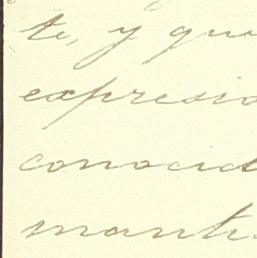 te, y que
expresio
conocid
mant